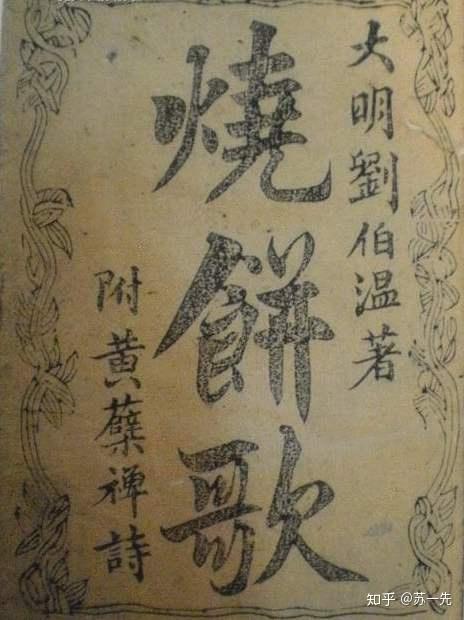 大明劉伯温著
燒餅歌
附黄蘗禅詩
知乎 @苏一先